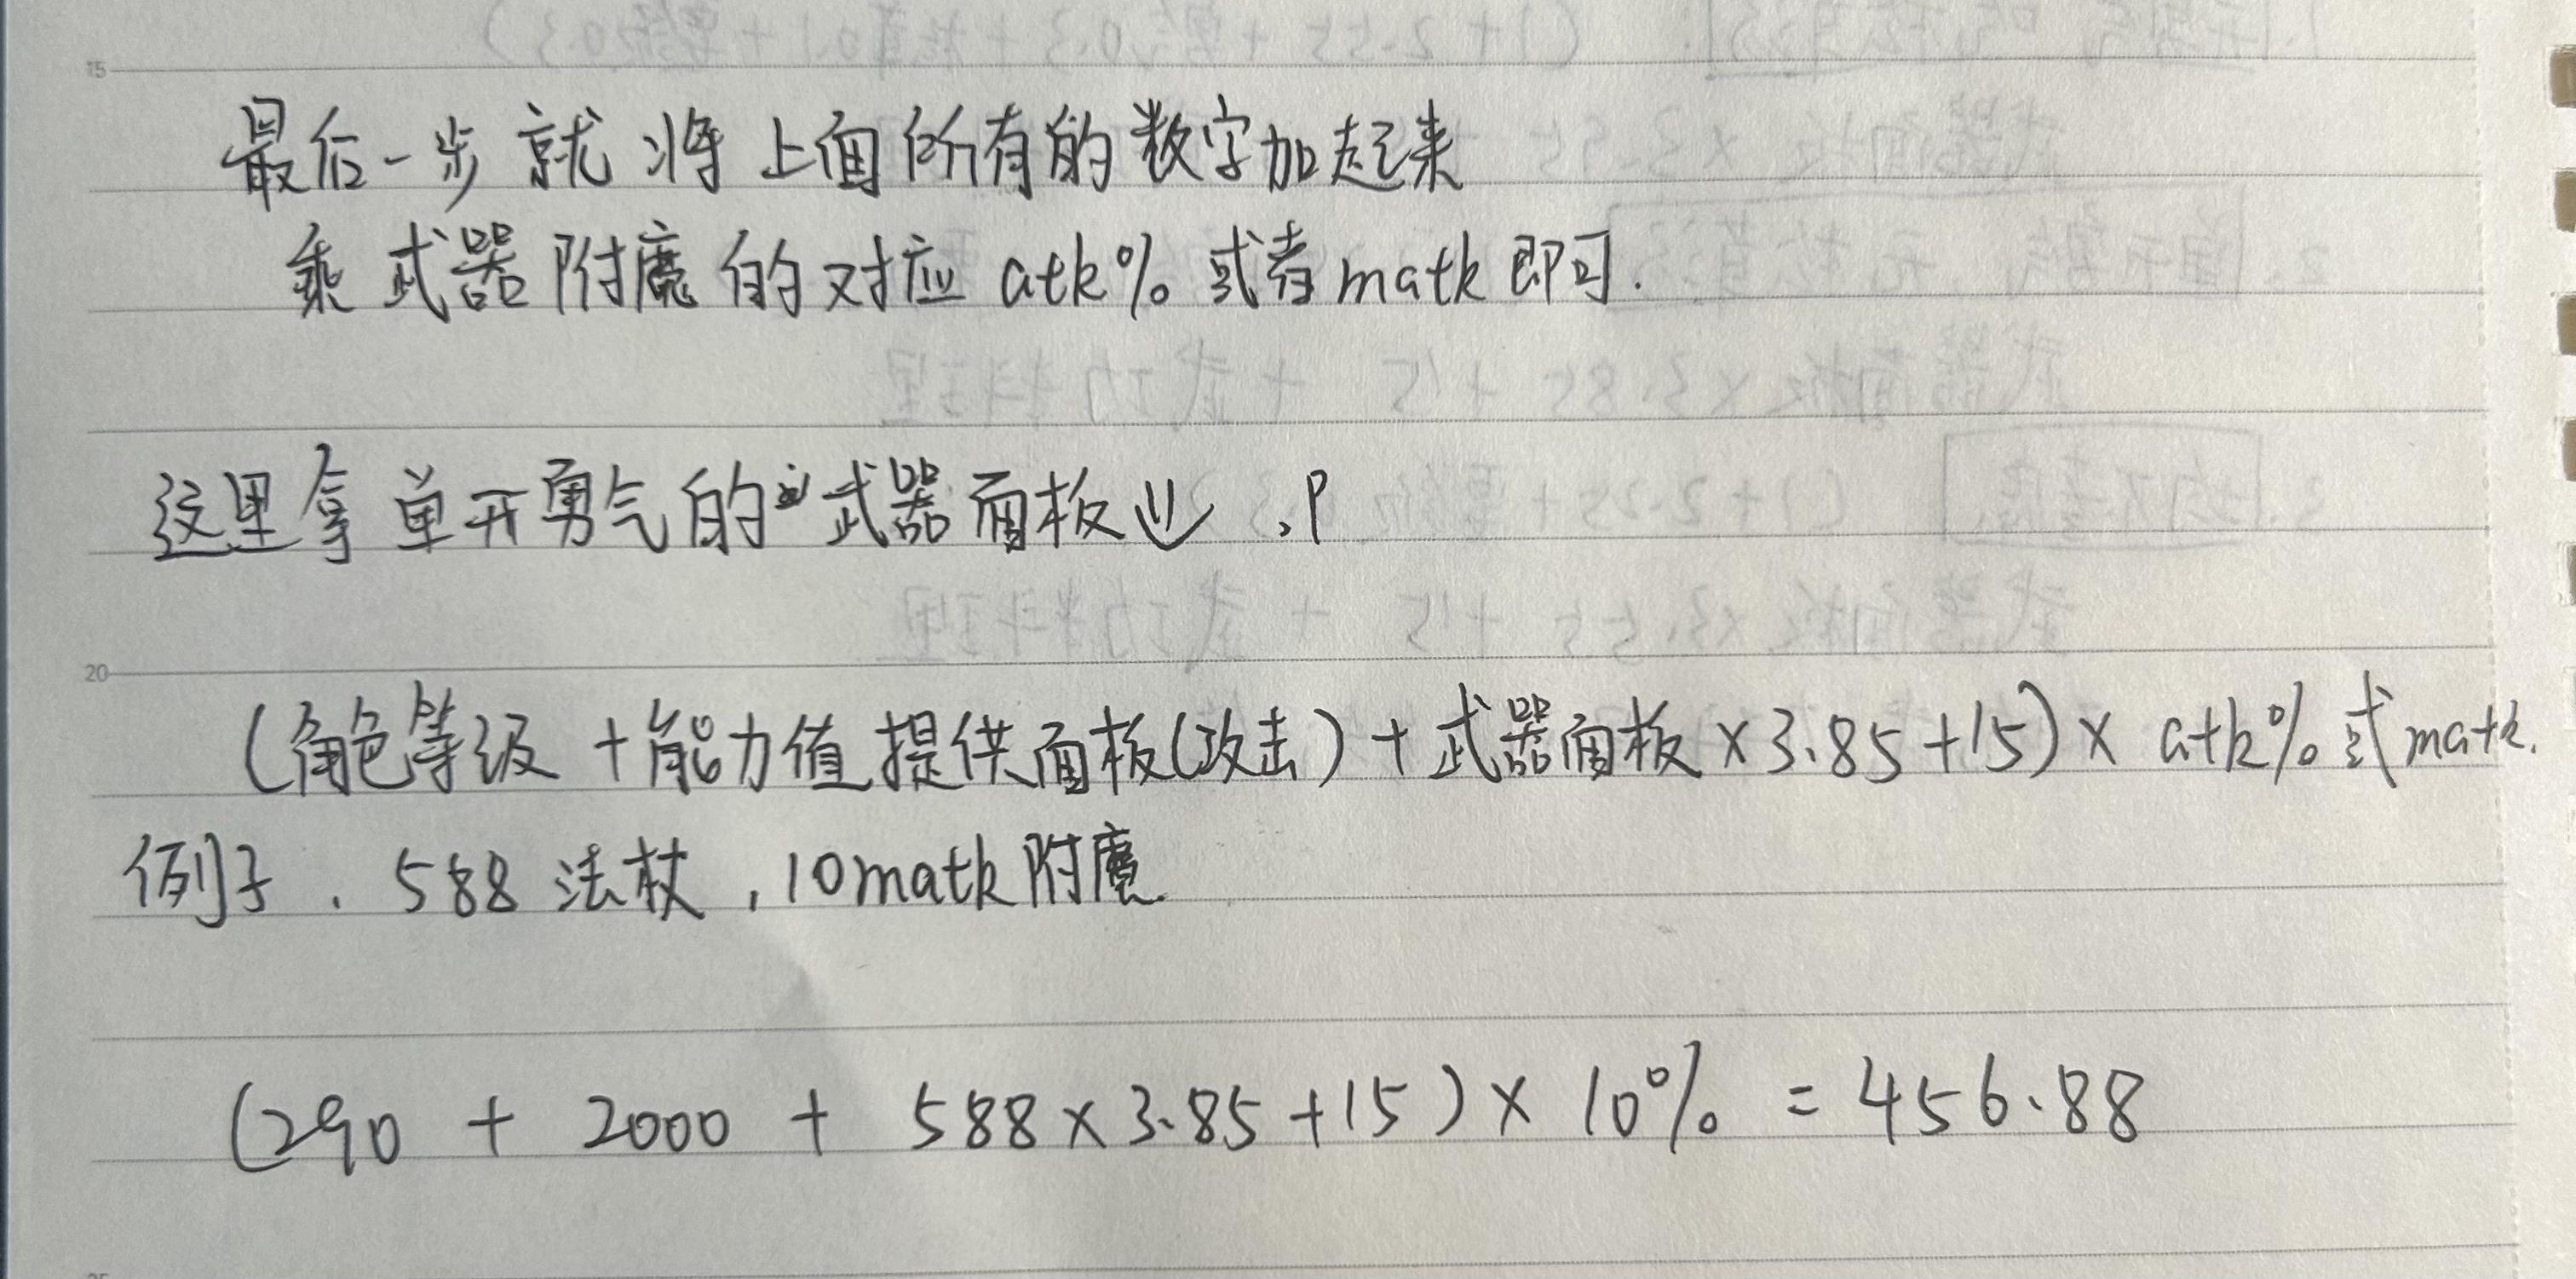 15
最后一步就将上面所有的数字加起来
乘武器附魔的对应atk%或者matk即可.
这里拿单开勇气的武器面板
20
(角色等级+能力值提供面板(攻击)+武器面板×3.85+15)×atk%或matk.
例子.588法杖,10matk附魔.
(290+2000+588×3.85+15)×10%=456.88